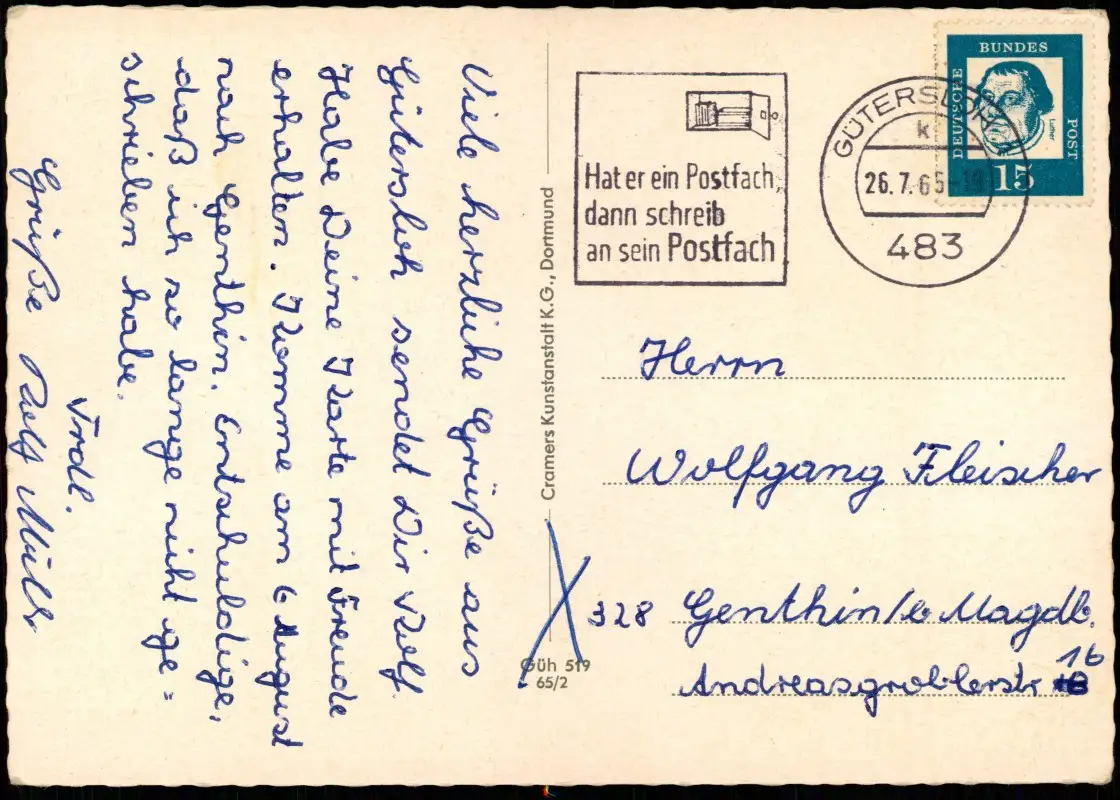 Viele herzliche Grüße aus
Gütersloh sendet Dir Rolf.
Habe Deine Karte mit Freude
erhalten. Komme am 6 August
nach Genthin. Entschuldige,
daß ich so lange nicht ge=
schrieben habe.
Frdl.
Grüße Rolf
Cramers Kunstanstalt K.G., Dortmund
Güh 519
65/2
Hat er ein Postfach,
dann schreib
an sein Postfach
GÜTERSLOH
k
26.7.65-19
483
DEUTSCHE
BUNDES
POST
Luther
15
Herrn
Wolfgang Fleischer
328 Genthin/b Magdb.
16